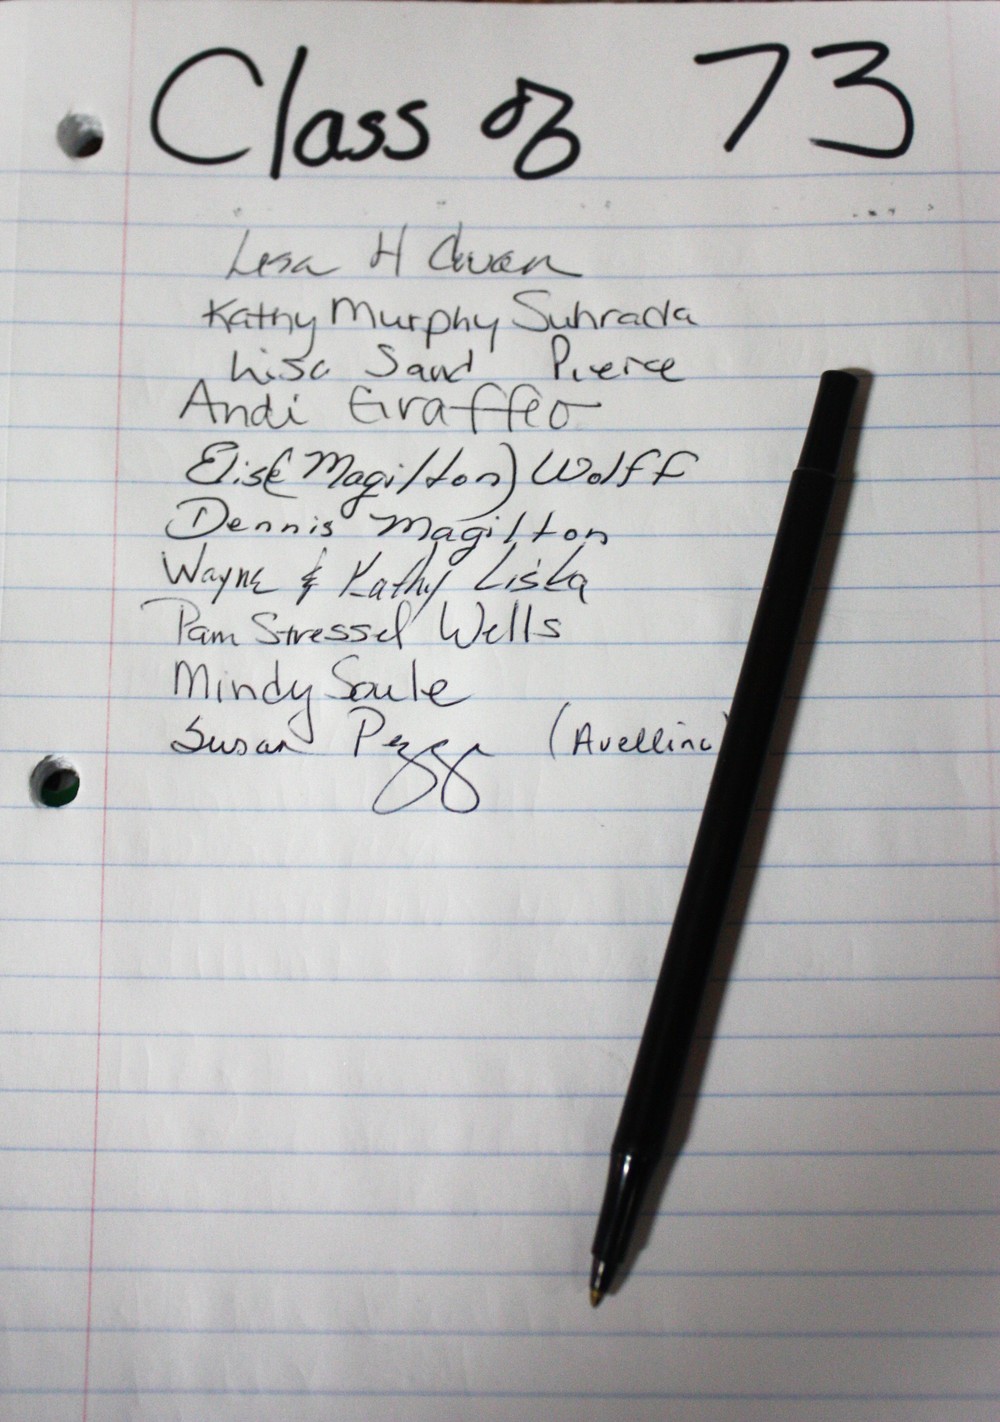 Class of 73
Lesa H
Kathy Murphy Suhrada
Lisa Sand Pierce
Andi Graffeo
Elise (Magilton) Wolff
Dennis Magilton
Wayne & Kathy Liska
Pam Stressel Wells
Mindy Soule
Susan (Avellino